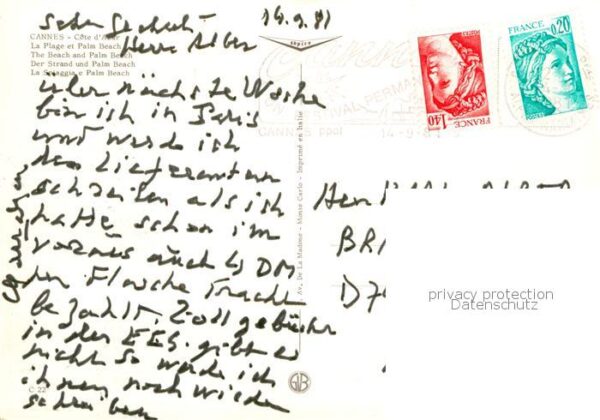 14.9.81
Sehr Geehrter
Herr Alber
CANNES - Côte d'Azur
La Plage et Palm Beach
The Beach and Palm Beach
Der Strand und Palm Beach
La Spiaggia e Palm Beach
über nächste Woche
bin ich in Paris
und werde ich
den Lieferanten
schreiben als ich
hatte schon im
voraus auch 13 DM
der Flasche Fracht
bezahlt. Zoll gebühr
in der EEG. gibt es
nicht so werde ich
ihnen noch wieder
schreiben
C 22
épire
Av. De La Madone - Monte Carlo - Imprimé en Italie
FRANCE
0,20
1,40
FRANCE
FESTIVAL PERMA
CANNES ppal
14-9-8
Herr
BR
D7
privacy protection
Datenschutz